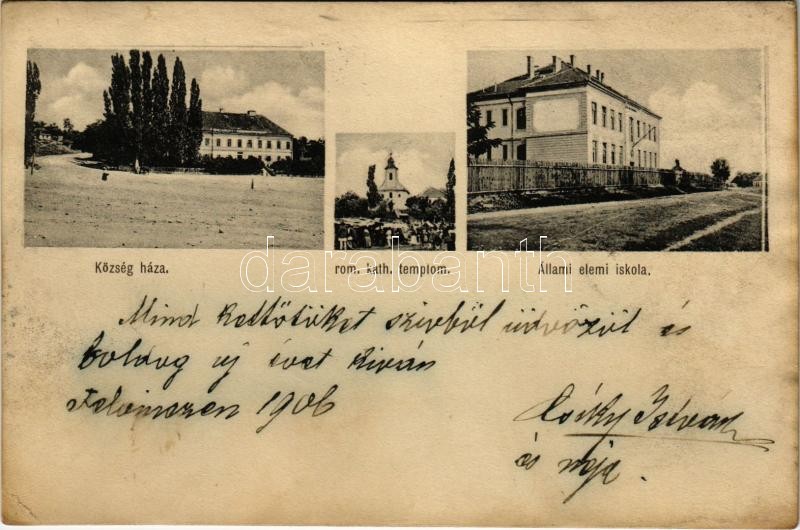 Község háza.
rom. kath. templom.
Állami elemi iskola.
darabanth
Mind kettőtöket szivből üdvözöl és
boldog uj évet kiván
Felvinczen 1906
Csíky István
és neje.